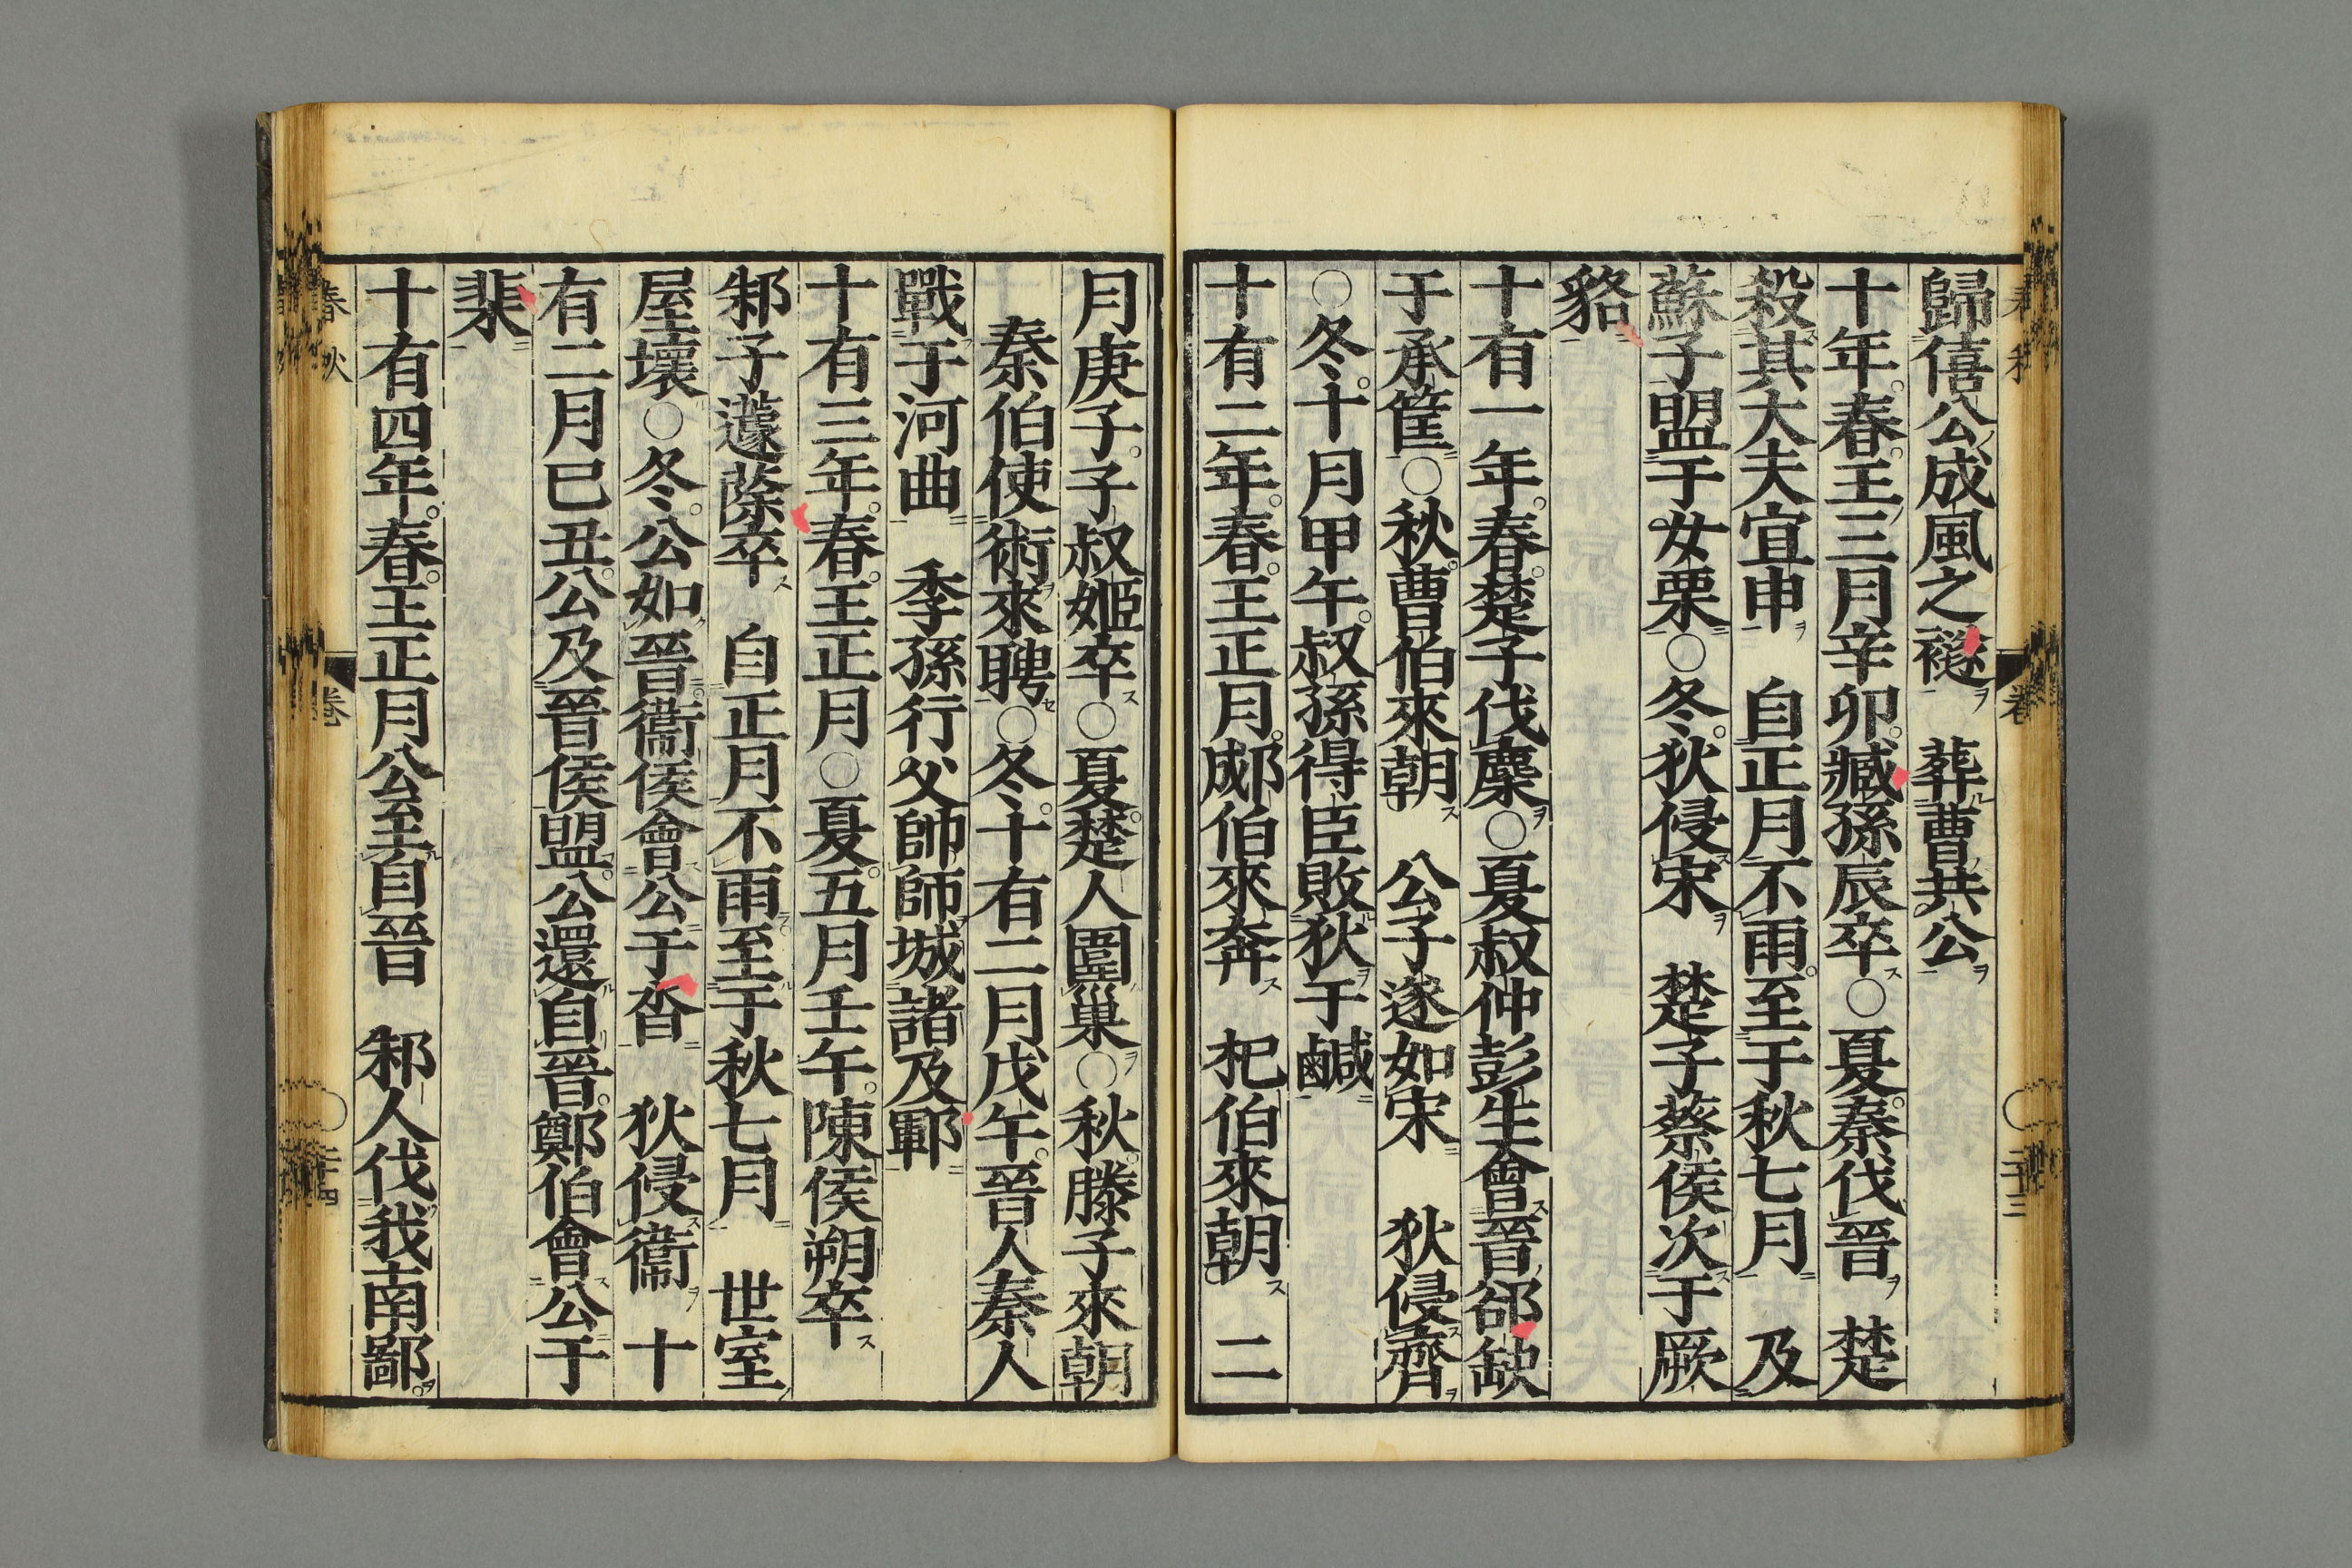 歸僖公成風之襚　葬曹共公
十年春王三月辛卯臧孫辰卒○夏秦伐晉　楚
殺其大夫宜申　自正月不雨至于秋七月　及
蘇子盟于女栗○冬狄侵宋　楚子蔡侯次于厥
貉
十有一年春楚子伐麇○夏叔仲彭生會晉郤缺
于承筐○秋曹伯來朝　公子遂如宋　狄侵齊
○冬十月甲午叔孫得臣敗狄于鹹
十有二年春王正月郕伯來奔　杞伯來朝　二
月庚子子叔姬卒○夏楚人圍巢○秋滕子來朝
秦伯使術來聘○冬十有二月戊午晉人秦人
戰于河曲　季孫行父帥師城諸及鄆
十有三年春王正月○夏五月壬午陳侯朔卒
邾子蘧蒢卒　自正月不雨至于秋七月　世室
屋壞○冬公如晉衞侯會公于沓　狄侵衞　十
有二月己丑公及晉侯盟公還自晉鄭伯會公于
棐
十有四年春王正月公至自晉　邾人伐我南鄙
春秋
卷
○
二十三
春秋
卷
○
二十四